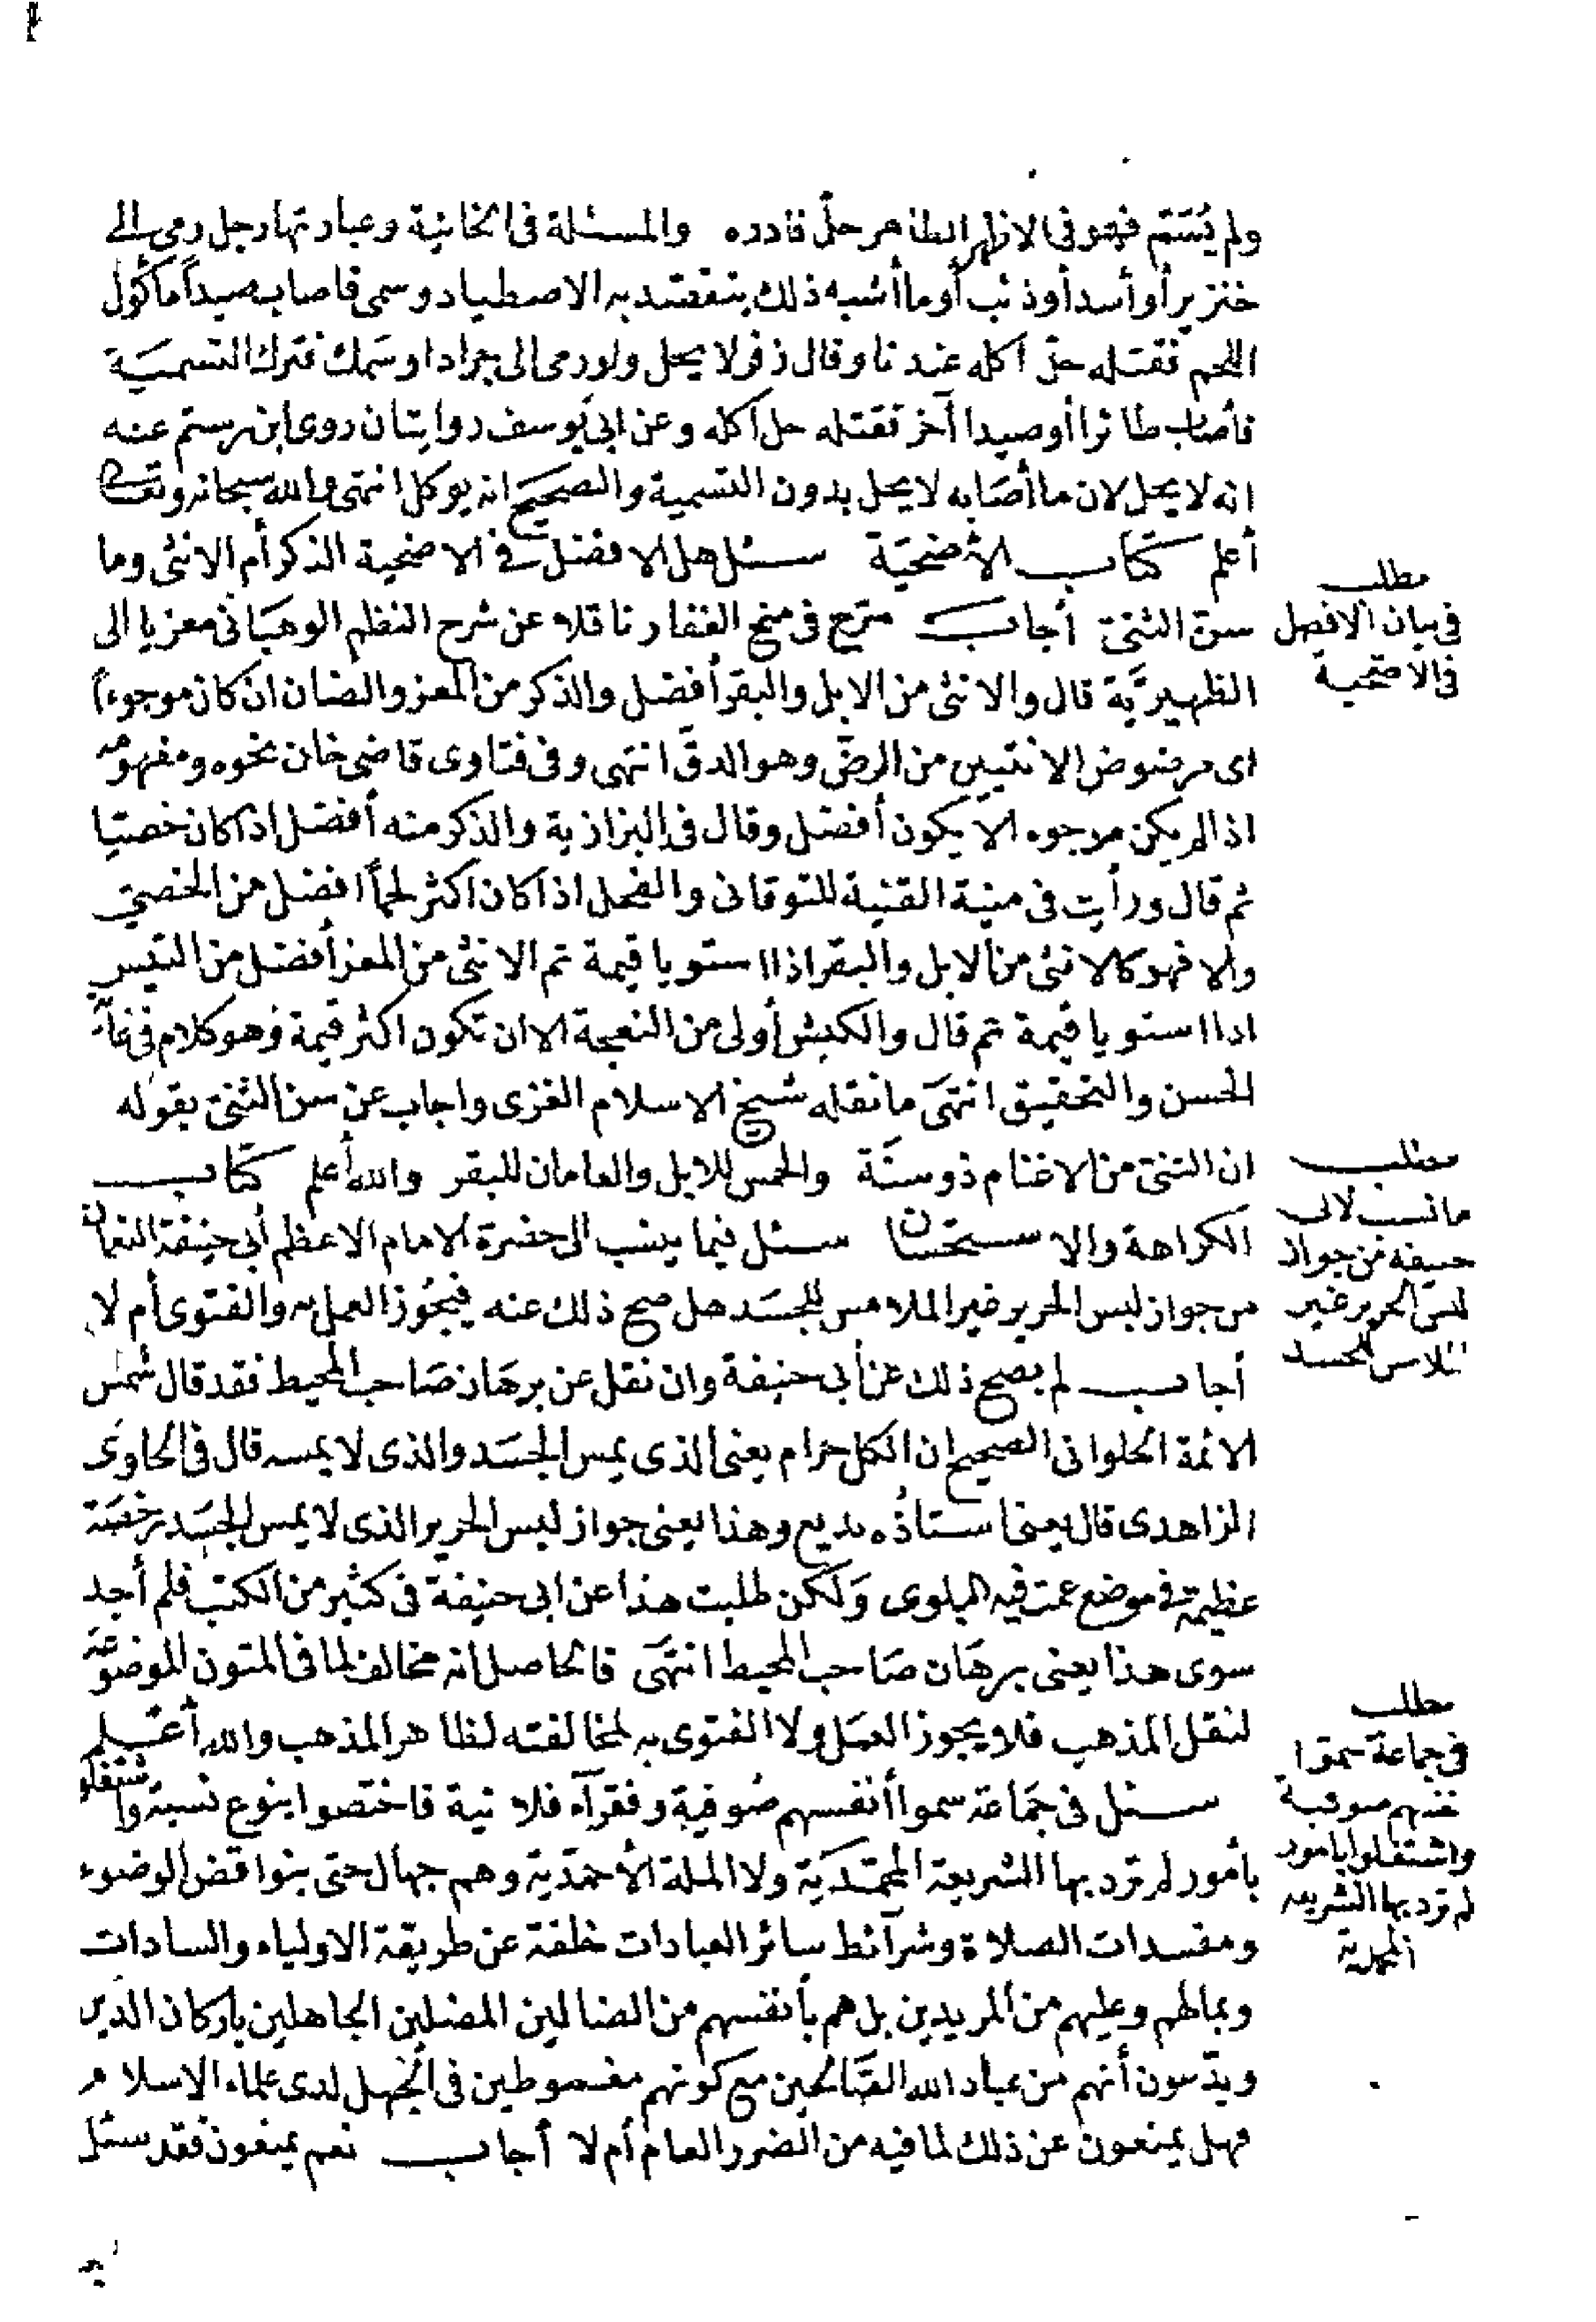 ولم يُتمّم فهو في الاظهر الظاهر حلّ فادره والمسئلة فى الخانية وعبارتها رجل رمى الى
خنزيرأوأسدأوذئب أوماأشبه ذلك يتقصّد به الاصطياد وسمى فاصاب صيداً ماكول
اللحم فقتله حلّ اكله عندنا وقال زفر لا يحل ولورمى الى جراد او سَمك فترك التسميَة
فأصاب طائرا أوصيدا آخر فقتله حل اكله وعن ابى يوسف روايتان روى ابن رستم عنه
انه لا يحل لان ماأصَابه لا يحل بدون التسمية والصحيح انه يوكل انتهى والله سبحانه وتعالى
أعلم كتاب الأضحيَة سئل هل الافضل فى الاضحية الذكر أم الانثى وما
سن الثنىّ أجاب صرّح فى منح الغفار ناقلا عن شرح النظم الوهبانى معزيا الى
الظهيريَّة قال والانثى من الابل والبقر أفضل والذكر من المعز والضان ان كان موجوءاً
اى مرضوض الانثيين من الرضّ وهو الدقّ انتهى وفى فتاوى قاضى خان نحوه ومفهومه
اذا لم يكن موجوء الا يكون أفضل وقال فى البزازية والذكر منه أفضل اذا كان خصيّا
ثم قال ورأيت فى منية القنية للتوقانى والفحل اذا كان اكثر لحماً افضل من الخصىّ
والا فهو كالانثى من الابل والبقر اذا استويا قيمة ثم الانثى من المعز أفضل من التيس
اذا استويا قيمة ثم قال والكبش أولى من النعجة الا ان تكون اكثر قيمة وهو كلام فى غاية
الحسن والتحقيق انتهى ما نقله شيخ الاسلام الغزى واجاب عن سن الثنىّ بقوله
ان الثنىّ من الاغنام ذو سنَة والخمس للابل والعامان للبقر والله أعلم كتاب
الكراهة والاستحسان سئل فيما ينسب الى حضرة الامام الاعظم أبى حنيفة النعمان
من جواز لبس الحرير غير الملامس للجسَد هل صح ذلك عنه فيجُوز العمل به والفتوى أم لا
أجاب لم يصح ذلك عن أبى حنيفة وان نقل عن برهَان صَاحب المحيط فقد قال شمس
الائمة الحلوانى الصحيح ان الكل حرام يعنى الذى يمس الجسَد والذى لا يمسه قال فى الحاوى
الزاهدى قال يعنى استاذُه بديع وهذا يعنى جواز لبس الحرير الذى لا يمس الجسَد رخصَة
عظيمة فى موضع عمت فيه البلوى وَلكن طلبت هذا عن ابى حنيفة فى كثير من الكتب فلم أجد
سوى هذا يعنى برهَان صَاحب المحيط انتهَى فالحاصل انه مخالف لما فى المتون الموضوعَة
لنقل المذهب فلا يجوز العمَل ولا الفتوى به لمخالفته لظاهر المذهب والله أعلم
سئل فى جمَاعة سموا أنفسهم صُوفية وفقرآء فلانية فاختصوا بنوع نسبة واشتغلوا
بأمور لم ترد بها الشريعة المحمّديَة ولا الملة الأحمَدّية وهم جهال حتى بنواقض الوضوء
ومفسدات الصلاة وشرآئط سائر العبادات خلفة عن طريقة الاولياء والسادات
وبمالهم وعليهم من المريدين بل هم بأنفسهم من الضالين المضلين الجاهلين بأركان الدين
ويدّعون أنهم من عباد الله الصَّالحين مع كونهم مغموطين فى الجهل لدى علماء الاسلام
فهل يمنعون عن ذلك لما فيه من الضرر العام أم لا أجاب نعم يمنعون فقد سئل
مطلب
فى بيان الافضل
فى الاضحية
مطلب
ما نسب لابى
حنيفة من جواز
لبس الحرير غير
الملامس للجسد
مطلب
فى جماعة سموا
نفسهم صوفية
واشتغلوا بامور
لم ترد بها الشريعه
المحمدية